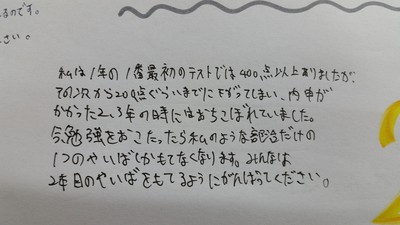 るのです。
さい。
私は1年の1番最初のテストでは400点以上ありましたが、
その次から200点ぐらいまでに下がってしまい、内申が
かかった2、3年の時にはおちこぼれていました。
今勉強をおこたったら私のような部活だけの
1つのやいばしかもてなくなります。みんなは
2本目のやいばをもてるようにがんばってください。